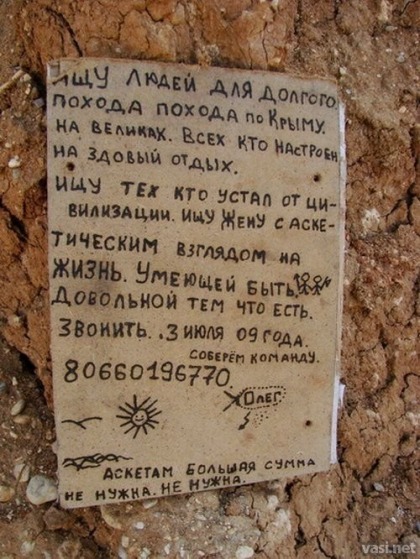 ИЩУ ЛЮДЕЙ ДЛЯ ДОЛГОГО
ПОХОДА ПОХОДА ПО КРЫМУ.
НА ВЕЛИКАХ. ВСЕХ КТО НАСТРОЕН
НА ЗДОВЫЙ ОТДЫХ.
ИЩУ ТЕХ КТО УСТАЛ ОТ ЦИ-
ВИЛИЗАЦИИ. ИЩУ ЖЕНУ С АСКЕ-
ТИЧЕСКИМ ВЗГЛЯДОМ НА
ЖИЗНЬ. УМЕЮЩЕЙ БЫТЬ
ДОВОЛЬНОЙ ТЕМ ЧТО ЕСТЬ.
ЗВОНИТЬ. .3 ИЮЛЯ 09 ГОДА.
СОБЕРЁМ КОМАНДУ.
80660196770.
ОЛЕГ
АСКЕТАМ БОЛЬШАЯ СУММА
НЕ НУЖНА. НЕ НУЖНА.
vasi.net